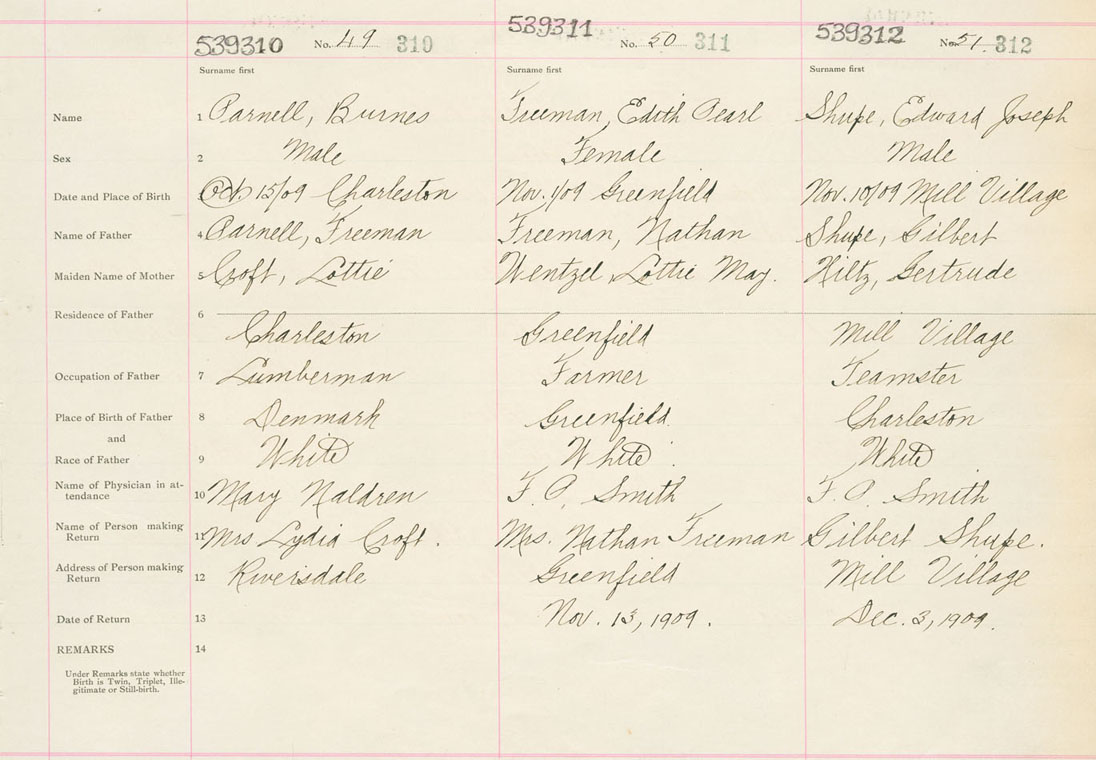 539310 No. 49 310 539311 No. 50 311 539312 No. 51. 312
Surname first Surname first Surname first
Name 1 Parnell, Burnes Freeman, Edith Pearl Shupe, Edward Joseph
Sex 2 Male Female Male
Date and Place of Birth 3 Oct. 15/09 Charleston Nov. 1/09 Greenfield Nov. 10/09 Mill Village
Name of Father 4 Parnell, Freeman Freeman, Nathan Shupe, Gilbert
Maiden Name of Mother 5 Croft, Lottie Wentzel, Lottie May. Hiltz, Gertrude
Residence of Father 6
Charleston Greenfield Mill Village
Occupation of Father 7 Lumberman Farmer Teamster
Place of Birth of Father 8 Denmark Greenfield. Charleston
and
Race of Father 9 White White. White
Name of Physician in at-
tendance 10 Mary Naldren F. P. Smith F. P. Smith
Name of Person making
Return 11 Mrs Lydia Croft. Mrs. Nathan Freeman Gilbert Shupe.
Address of Person making
Return 12 Riversdale Greenfield Mill Village
Date of Return 13 Nov. 13, 1909. Dec. 3, 1909.
REMARKS 14
Under Remarks state whether
Birth is Twin, Triplet, Ille-
gitimate or Still-birth.